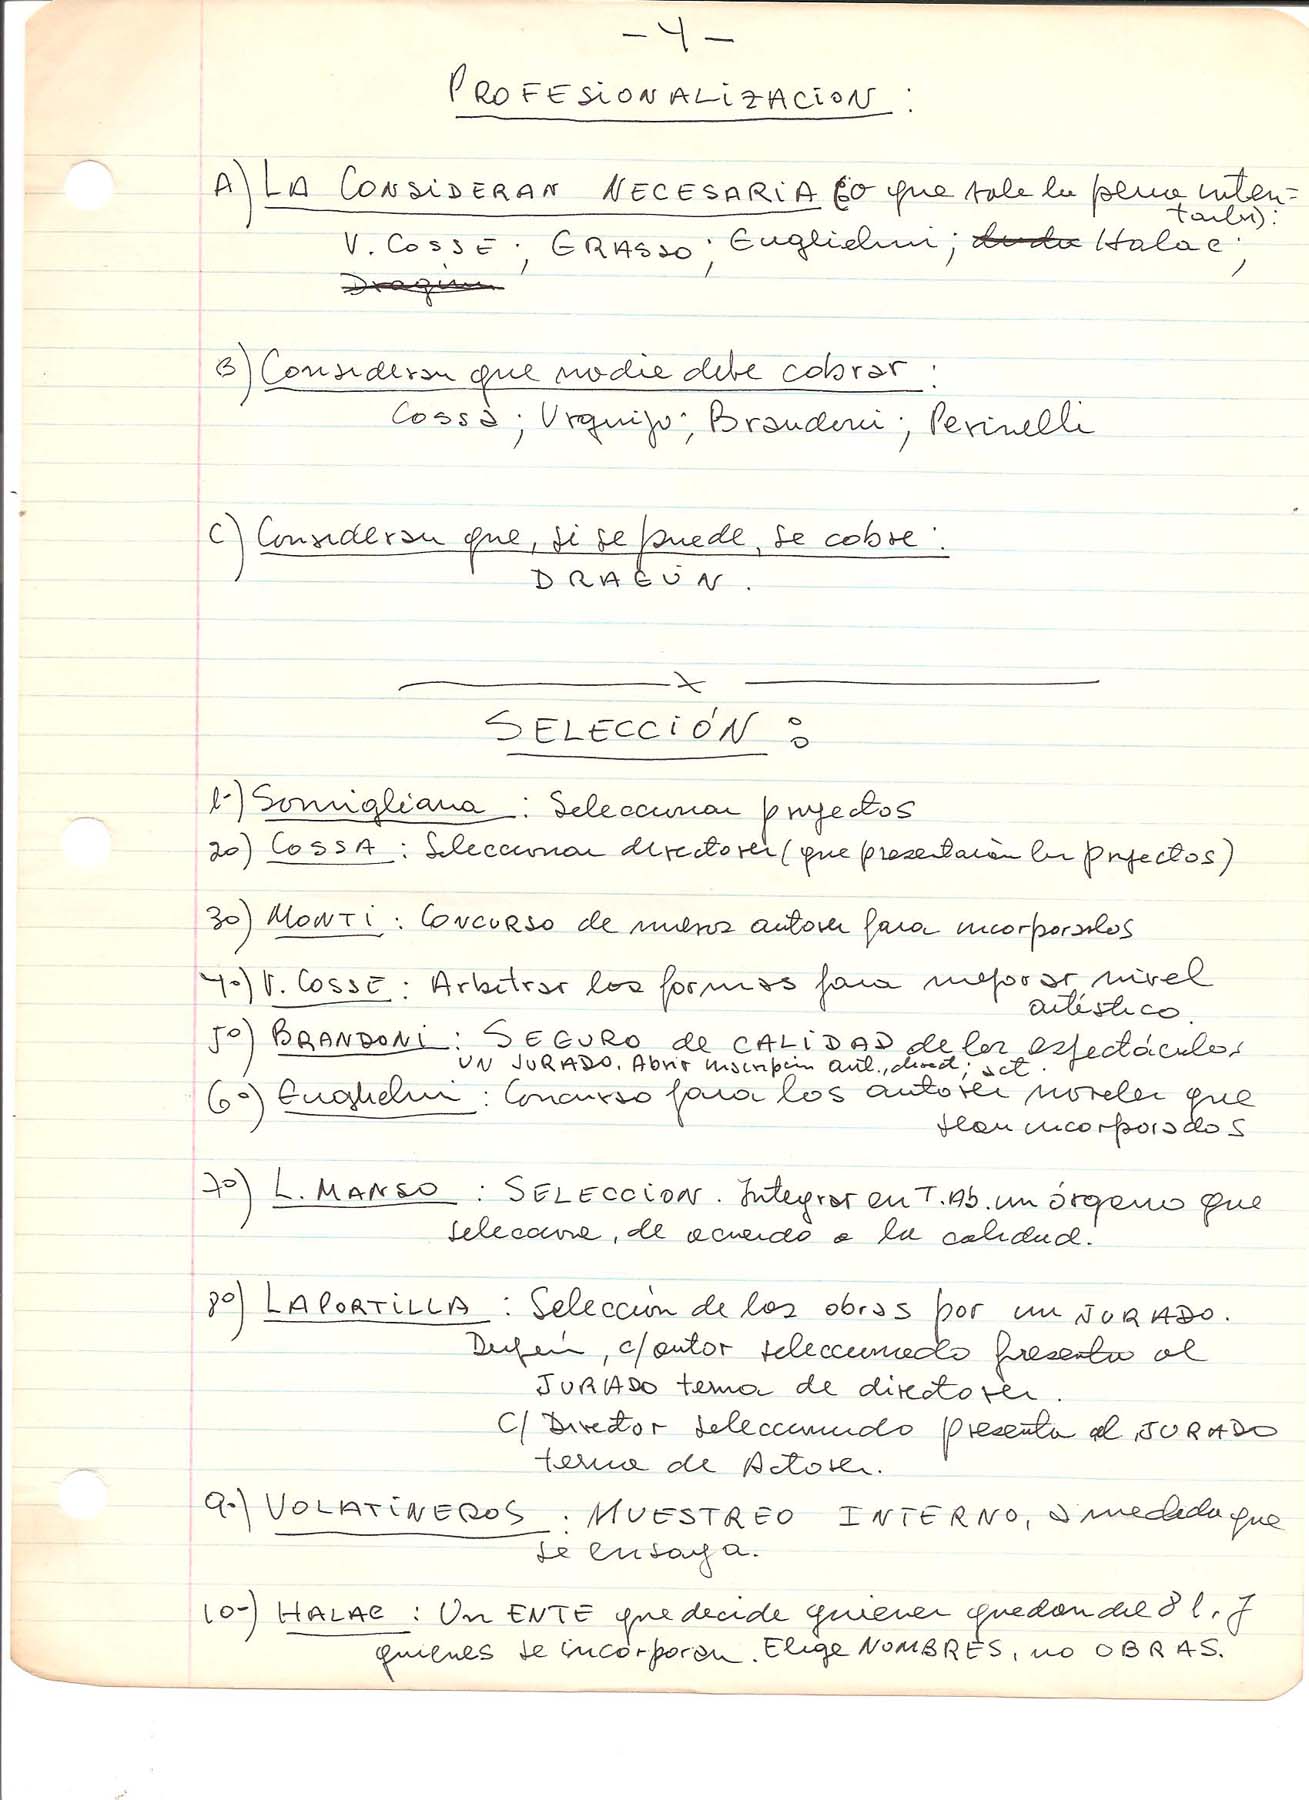 - 4 -
PROFESIONALIZACION :
A) LA CONSIDERAN NECESARIA (o que vale la pena inten=
tarlo):
V. COSSE ; GRASSO ; Guglielmi ; Halac ;
B) Consideran que nadie debe cobrar :
Cossa ; Urquijo ; Brandoni ; Perinelli
C) Consideran que, si se puede, se cobre :
DRAGÚN .
x
SELECCIÓN :
1º) Somigliana : Seleccionar proyectos
2º) COSSA : Seleccionar directores (que presentarán los proyectos)
3º) MONTI : CONCURSO de nuevos autores para incorporarlos
4º) V. COSSE : Arbitrar las formas para mejorar nivel
artístico.
5º) BRANDONI : SEGURO de CALIDAD de los espectáculos
UN JURADO. Abrir inscripción aut., direct; act.
6º) Guglielmi : Concurso para los autores noveles que
sean incorporados
7º) L. MANSO : SELECCION. Integrar en T. Ab. un órgano que
seleccione, de acuerdo a la calidad.
8º) LAPORTILLA : Selección de las obras por un JURADO.
Después, c/autor seleccionado presenta al
JURADO terna de directores.
C/ Director seleccionado presenta al JURADO
terna de Actores.
9º) VOLATINEROS : MUESTREO INTERNO, a medida que
se ensaya.
10º) HALAC : Un ENTE que decide quienes quedan del 81. y
quienes se incorporan. Elige NOMBRES, no OBRAS.